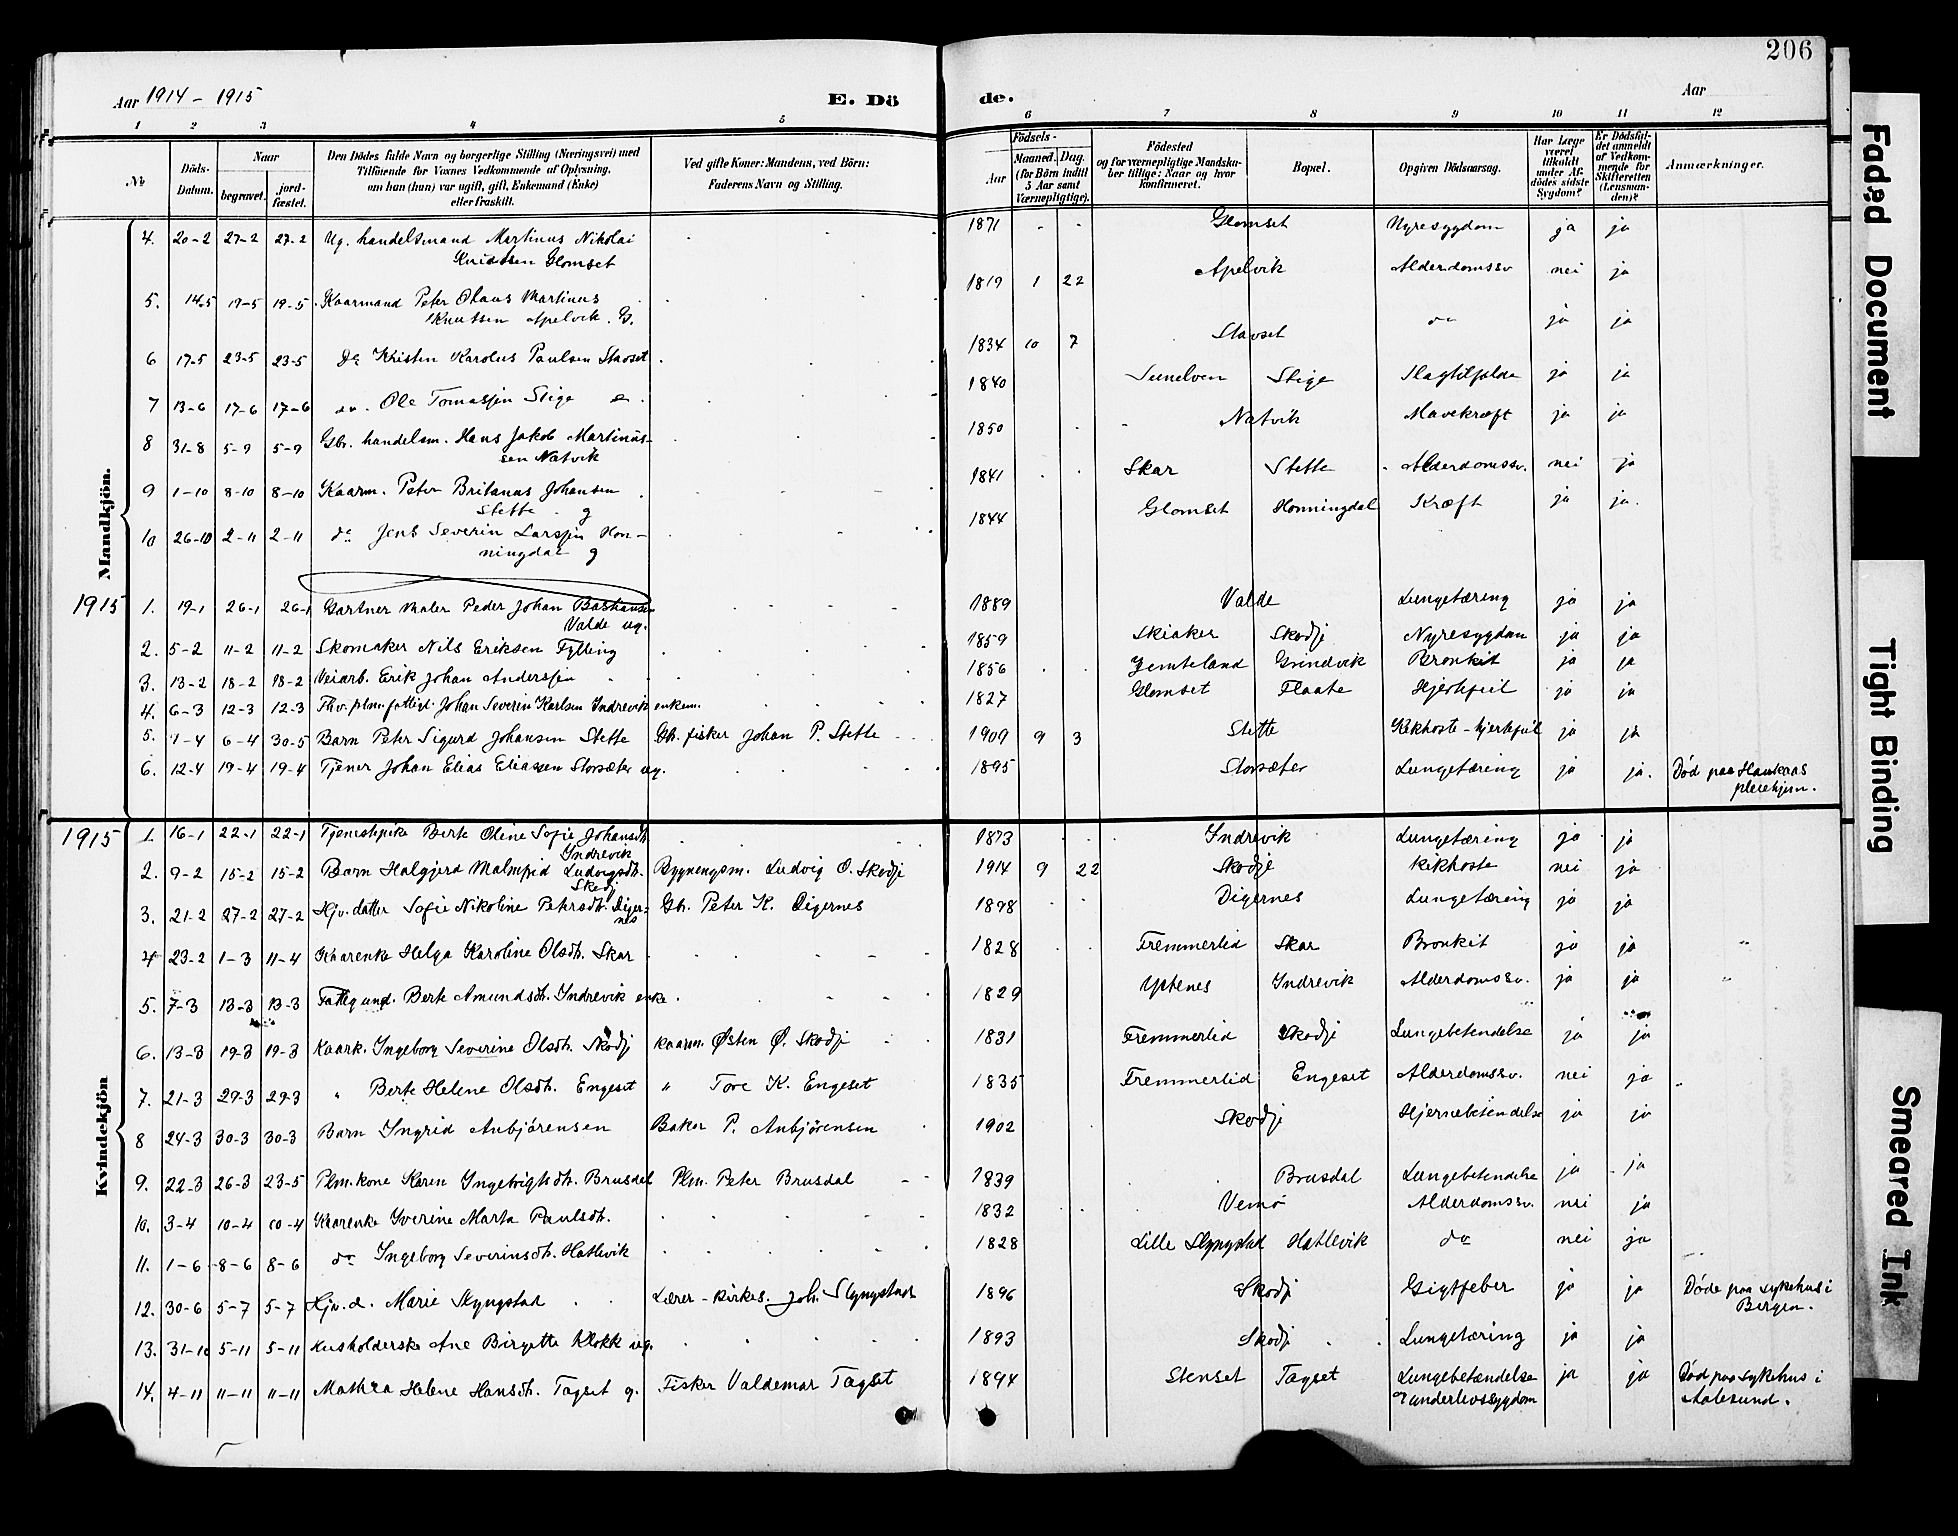 206
Aar 1914 - 1915
E. Dö
de.
Aar
1 2 3 4 5
6 7 8 9 10 11 12
No
Döds-Datum.
Naar
begravet.
jord-fæstet.
Den Dödes fulde Navn og borgerlige Stilling (Næringsvei) med
Tilföiende for Voxnes Vedkommende af Oplysning,
om han (hun) var ugift, gift, Enkemand (Enke)
eller fraskilt.
Ved gifte Koner: Mandens, ved Börn:
Faderens Navn og Stilling.
Födsels-
Aar
Maaned. Dag.
(for Börn indtil
5 Aar samt
Værnepligtige).
Födested
og for værnepligtige Mandskaber tillige: Naar og hvor
konfirmeret.
Bopæl.
Opgiven Dödsaarsag.
Har Læge
været
tilkaldt
under Afdödes sidste
Sygdom?
Er Dödsfaldet anmeldt
af Vedkommende for
Skifteretten
(Lensmanden)?
Anmærkninger.
Mandkjön.
4. 20-2 27-2 27-2 Ug. handelsmand Martinus Nikolai 1871 Glomset Nyresygdom ja ja
Knudsen Glomset
5. 14-5 19-5 19-5 Kaarmand Peter Olaus Martinus 1819 1 22 Apelvik Alderdomssv nei ja
Knutsen Apelvik. G.
6 17-5 23-5 23-5 do Kristen Karolus Paulsen Stavset 1834 10 7 Stavset do ja ja
7 13-6 17-6 17-6 do. Ole Tomassen Stige 1840 Sunelven Stige Slagtilfælde ja ja
8 31-8 5-9 5-9 Gbr. handelsm. Hans Jakob Martinus- 1850 Natvik Mavekræft ja ja
sen Natvik
9 1-10 8-10 8-10 Kaarm. Peter Britanus Johansen 1841 Skar Stette Alderdomssv. nei ja
Stette g
10 26-10 2-11 2-11 do Jens Severin Larssen Hon- 1844 Glomset Honningdal Kræft ja ja.
ningdal g
1915 1. 19-1 26-1 26-1 Gartner Maler Peder Johan Bastiansen 1889 Valde Lungetæring ja ja
Valde ug.
2. 5-2 11-2 11-2 Skomaker Nils Eriksen Fylling 1859 Skiaker Skodje Nyresygdom ja ja
3. 13-2 18-2 18-2 Veiarb. Erik Johan Anderssen 1856 Jemteland Grindvik Bronkit ja ja
4. 6-3 12-3 12-3 Fhv. plm. fattigl. Johan Severin Karlsen Indrevik enkem. 1827 Glomset Flaate Hjertefeil ja ja
5. 1-4 6-4 30-5 Barn Peter Sigurd Johansen Stette Gb. fisker Johan P. Stette 1909 9 3 Stette Kikhoste - hjertefeil ja ja
6. 12-4 19-4 19-4 Tjener Johan Elias Eliassen Storsæter ug. 1895 Storsæter Lungetæring ja ja. Död paa Haukaas
pleiehjem.
Kvindekjön
1915 1. 16-1 22-1 22-1 Tjenestepike Berte Oline Sofie Johansdt. 1873 Indrevik Lungetæring ja ja
Indrevik
2. 9-2 15-2 15-2 Barn Halgjerd Malmfrid Ludvigsdt. Bygnengsm. Ludvig O. Skodje 1914 9 22 Skodje Kikhoste nei ja
Skodj
3. 21-2 27-2 27-2 Hjv. datter Sofie Nikoline Petersdt. Diger- Gb. Peter K. Digernes 1898 Digernes Lungetæring ja ja
nes
4 23-2 1-3 11-4 Kaarenke Helga Karoline Olsdt. Skar 1828 Fremmerlid Skar Bronkit ja ja
5. 7-3 13-3 13-3 Fattigund. Berte Amundsdt. Indrevik enke. 1829 Yttenes Indrevik Alderdomssv. ja ja
6. 13-3 19-3 19-3 Kaark. Ingeborg Severine Olsdt. Skodj Kaarm. Østen Ø. Skodje 1831 Fremmerlid Skodje Lungebetendelse ja ja
7. 21-3 29-3 29-3 " Berte Helene Olsdt. Engeset " Tore K. Engeset 1835 Fremmerlid Engeset Alderdomssv. nei ja
8 24-3 30-3 30-3 Barn Ingrid Anbjørensen Baker P. Anbjørensen 1902 Skodje Hjernebetendelse ja ja
9. 22-3 26-3 23-5 Plm. kone Karen Ingebrigtsdt. Brusdal Plm. Peter Brusdal 1839 Brusdal Lungebetendelse ja ja
10. 3-4 10-4 10-4 Kaarenke Iverine Marta Paulsdt. 1832 Vemø Alderdomssv. nei ja
11. 1-6 8-6 8-6 do Ingeborg Severinsdt. Hatlevik 1828 Lille Slyngstad Hatlevik do nei ja
12. 30-6 5-7 5-7 Hjv. d. Marie Slyngstad Lærer - kirkes. Joh. Slyngstad 1896 Skodj Gigtfeber ja ja Døde paa sykehus i
Bergen.
13. 31-10 5-11 5-11 Husholderske Ane Birgitte Klokk ug. 1893 Skodj Lungetæring ja ja
14. 4-11 11-11 11-11 Mathea Helene Hansdt. Tagset g. Fisker Valdemar Tagset 1894 Stenset Tagset Lungebetændelse ja ja Død paa sykehus i
& underlivssygdom Aalesund.
Faded Document
Tight Binding
Smeared Ink